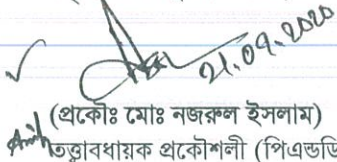 21.09.2020
(প্রকৌঃ মোঃ নজরুল ইসলাম)
তত্ত্বাবধায়ক প্রকৌশলী (পিএন্ডডি